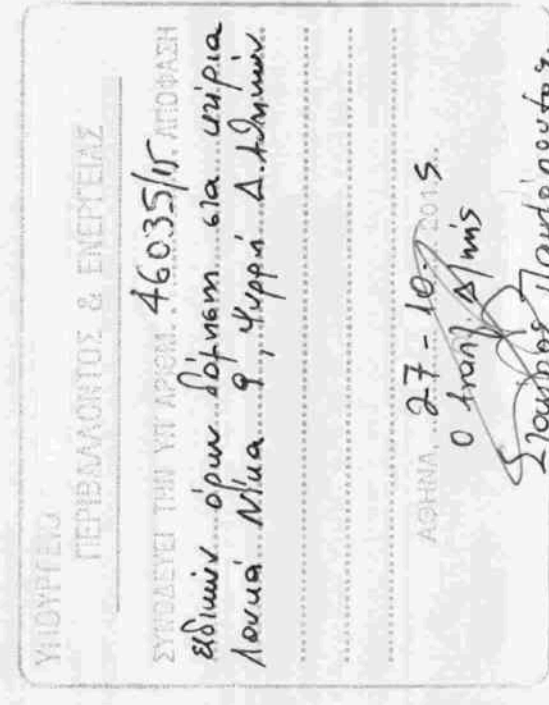 ΥΠΟΥΡΓΕΙΟ
ΠΕΡΙΒΑΛΛΟΝΤΟΣ & ΕΝΕΡΓΕΙΑΣ
ΣΥΝΟΔΕΥΕΙ ΤΗΝ ΥΠ ΑΡΙΘΜ. 46035/15 ΑΠΟΦΑΣΗ
ειδικών όρων δόμησης στα κτίρια
Λουκά Νίκα 9, Ψυρρή Δ. Αθηναίων
ΑΘΗΝΑ, 27-10- 2015
Ο Αναπ Δ/της